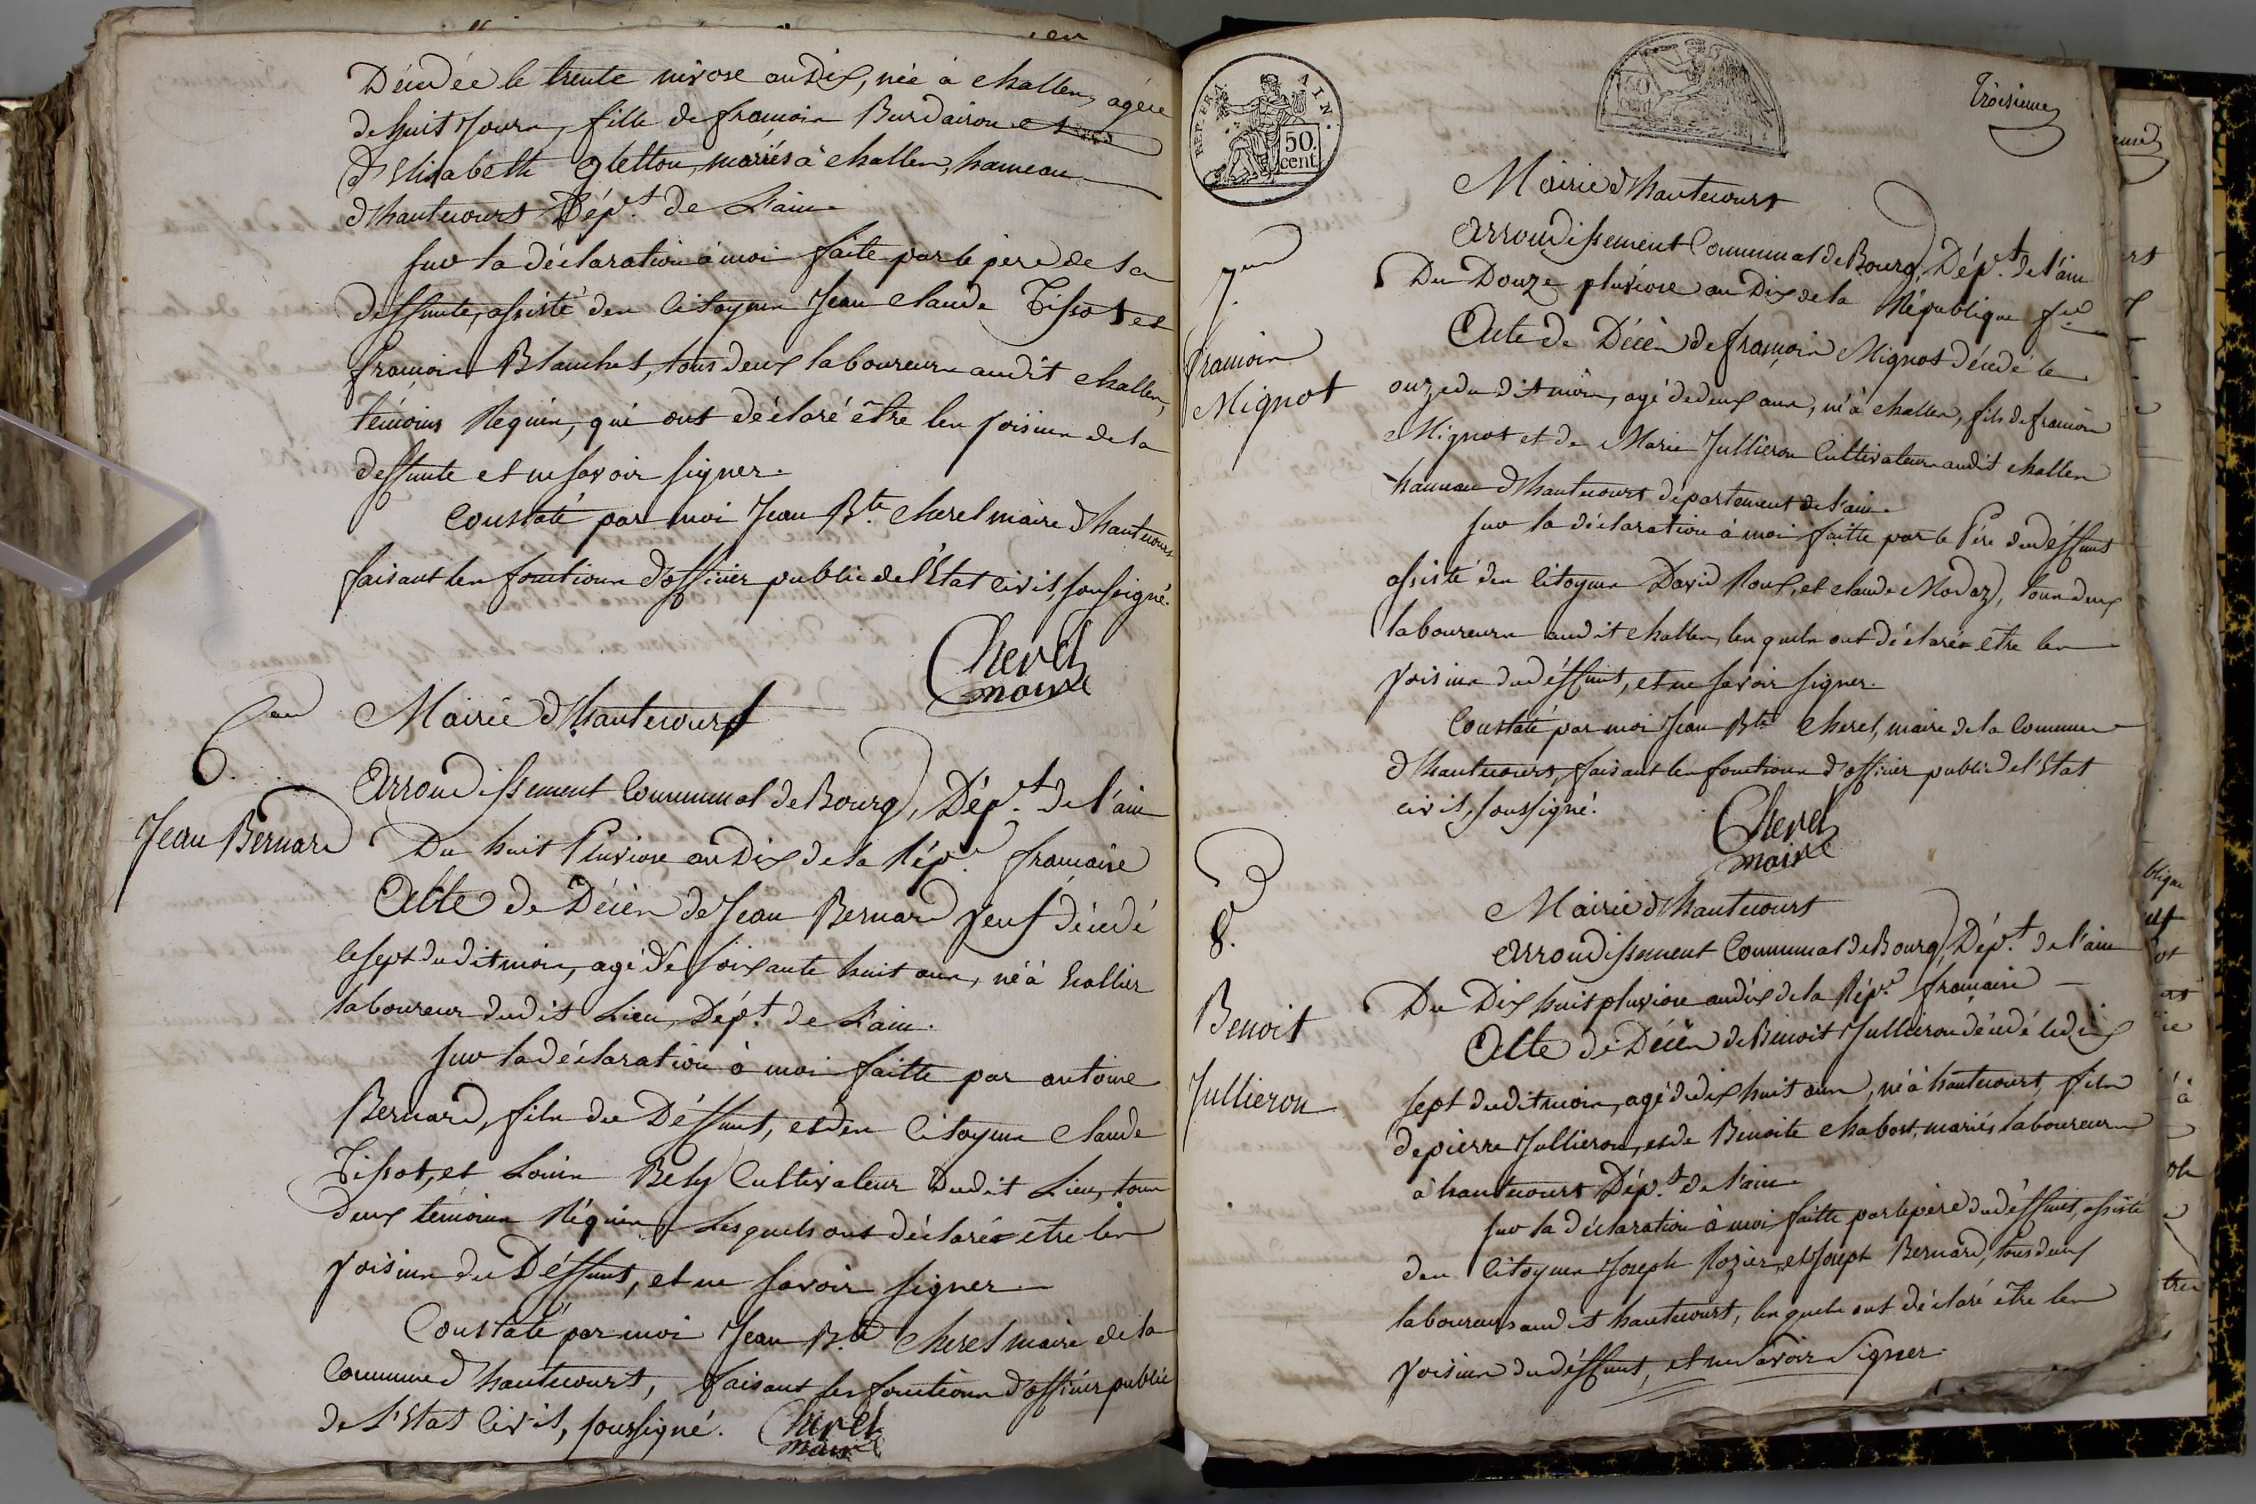 Décédée le trente nivose an Dix, née à challes, agée
de huit Jours, fille de françois Burdairon et
D'Elisabeth gletton, mariés à challes, hameau
d'hautecourt Dép.t de L'ain
Sur la déclaration à moi faite par le père de la
deffunte, assisté des Citoyens Jean claude Tissot et
françois Blanchet, tous deux laboureurs audit challes,
témoins Requis, qui ont déclaré être les voisins de la
deffunte et ne savoir signer.
Constaté par moi Jean B.te cherel maire d'hautecourt
faisant les fonctions d'officier public de l'Etat civil, soussigné.
Cherel
maire
6.
Jean Bernard
Mairie d'hautecourt
Arrondissement Communal de Bourg, Dép.t de l'ain
Du huit Pluviose an Dix de la Rép.e française
Acte de Décès de Jean Bernard veuf décédé
le sept dudit mois, agé de soixante huit ans, né à
laboureur dudit Lieu, Dép.t de L'ain.
Sur la déclaration à moi faitte par antoine
Bernard, fils du Déffunt, et des Citoyens Claude
Tissot, et Louis Bely Cultivateur dudit Lieu, tous
deux témoins Réquis, Lesquels ont déclarés être les
voisins du Déffunt, et ne savoir signer
Constaté par moi Jean B.te cherel maire de la
Commune d'hautecourt, faisant les fonctions d'officier public
de L'Etat Civil, soussigné.
Cherel
maire
REP. FRA. AIN.
50.
cent.
50
cent
Troisieme
7.
francois
Mignot
Mairie d'hautecourt
Arrondissement Communal de Bourg, Dép.t de l'ain
Du Douze pluviose an Dix de la République f.se
Acte de Décès de françois Mignot décédé le
onze du dit mois, agé de deux ans, né à challes, fils de françois
Mignot et de Marie Jullieron Cultivateurs audit challes
hameau d'hautecourt département de l'ain
Sur la déclaration à moi faitte par le Père du déffunt
assisté des Citoyens David Roux, et claude Modaz, tous deux
laboureurs audit challes, les quels ont déclarés etre les
voisins du déffunt, et ne savoir signer.
Constaté par moi Jean B.te Cherel, maire de la Commune
d'hautecourt, faisant les fonctions d'officier public de l'Etat
civil, soussigné.
Cherel
maire
8.
Benoit
Jullieron
Mairie d'hautecourt
Arrondissement Communal de Bourg, Dép.t de l'ain
Du Dix huit pluviose an dix de la Rép.e française
Acte de Décès de Benoit Jullieron décédé le dix
sept dudit mois, agé de dix huit ans, né à hautecourt, fils
de pierre Jullieron, et de Benoite chabot, mariés laboureurs
à hautecourt Dép.t de l'ain
Sur la déclaration à moi faitte par le père du déffunt, assisté
des Citoyens Joseph Rozier, et Joseph Bernard, tous deux
laboureurs audit hautecourt, les quels ont déclaré être les
voisins du déffunt, et ne savoir Signer.